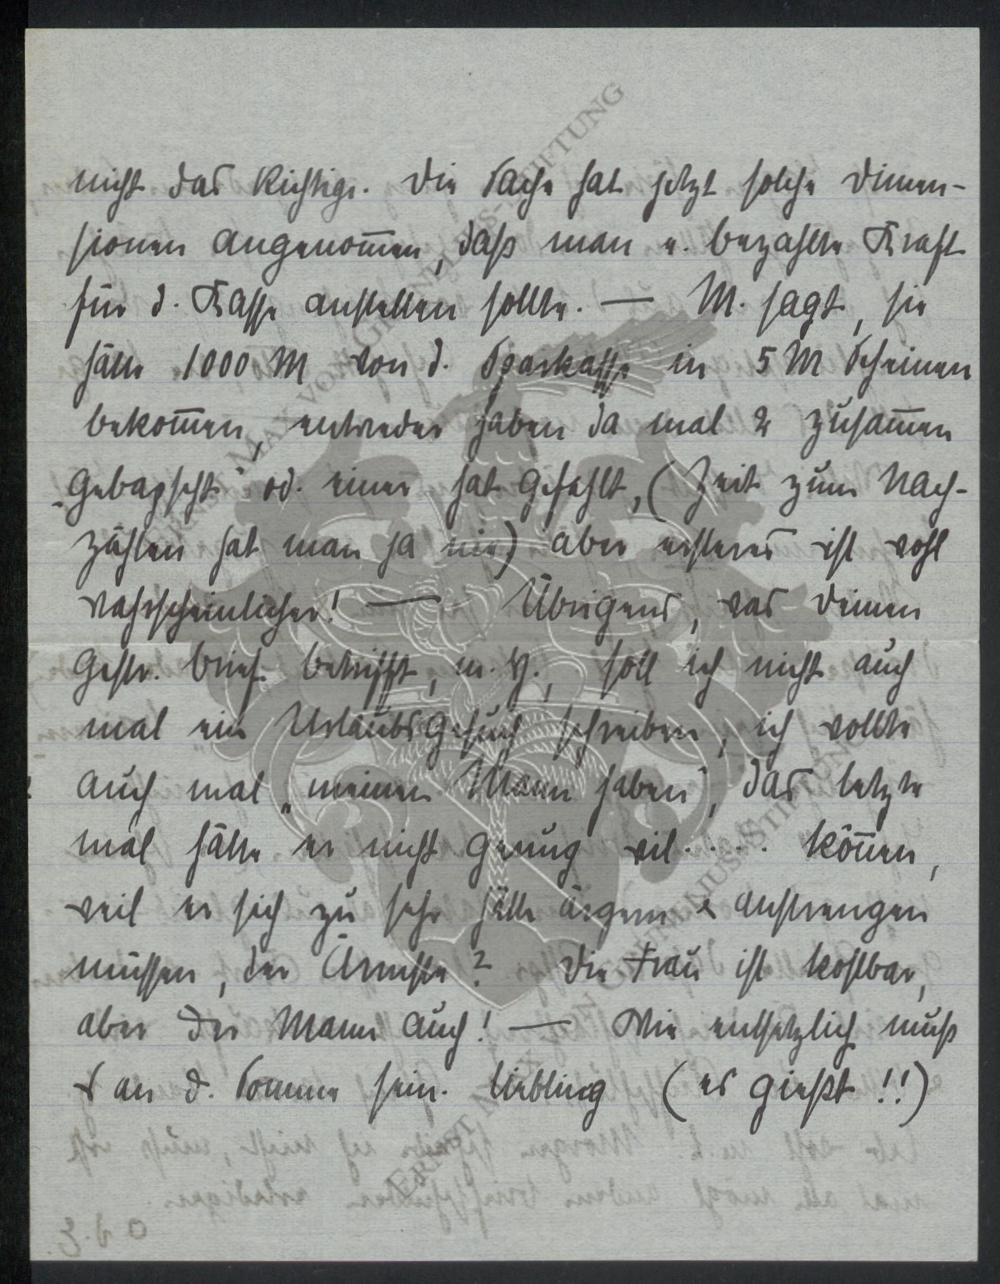 nicht das Richtige. Die Sache hat jetzt solche Dimen-
sionen angenom̅en, daß man e. bezahlte Kraft
für d. Kasse anstellen sollte. — M. sagt, sie
hätte 1000 M von d. Sparkasse in 5 M Scheinen
bekom̅en, entweder haben da mal 2 zusam̅en
„gebapscht“ od. einer hat gefehlt, (Zeit zum Nach-
zählen hat man ja nie) aber ersteres ist wohl
wahrscheinlicher! — Übrigens, was Deinen
gestr. Brief betrifft, m. H., soll ich nicht auch
mal ein Urlaubsgesuch schreiben, ich wollte
auch mal „meinen Mann haben“, das letzte
mal hätte er nicht genug viel..... kön̅en,
weil er sich zu sehr hätte ärgern & anstrengen
müssen, der Ärmste? Die Frau ist kostbar,
aber der Mann auch! — Wie entsetzlich muß
es an d. Somme sein. Liebling (es gießt!!)
MAX VON GRUNELIUS-STIFTUNG
MAX VON GRUNELIUS-STIFTUNG